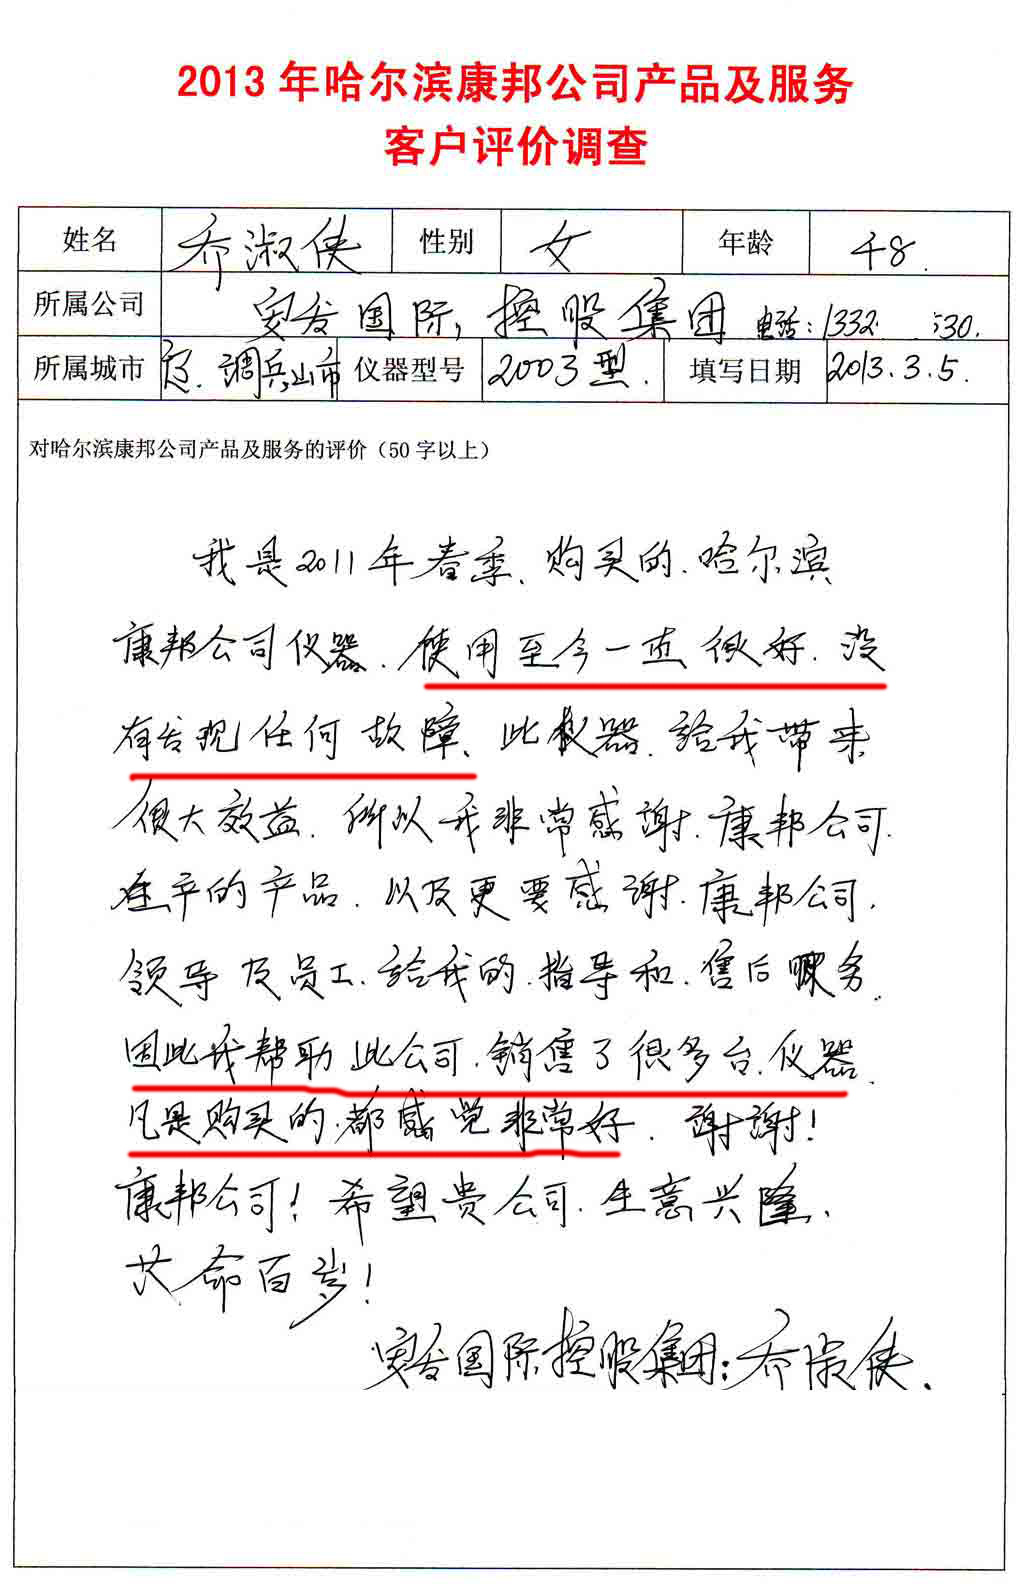 2013 年哈尔滨康邦公司产品及服务
客户评价调查
姓名 乔淑侠 性别 女 年龄 48.
所属公司 安发国际,控股集团 电话:1332 530.
所属城市 辽.调兵山市 仪器型号 2003型. 填写日期 2013.3.5.
对哈尔滨康邦公司产品及服务的评价（50 字以上）
我是2011年春季、购买的.哈尔滨
康邦公司仪器.使用至今一直很好.没
有发现任何故障、此仪器.给我带来
很大效益.所以我非常感谢.康邦公司.
生产的产品.以及更要感谢.康邦公司.
领导及员工.给我的.指导和.售后服务.
因此我帮助此公司.销售了很多台.仪器.
凡是购买的.都感觉非常好.谢谢!
康邦公司!希望贵公司.生意兴隆.
命百岁!
安发国际控股集团:乔淑侠.